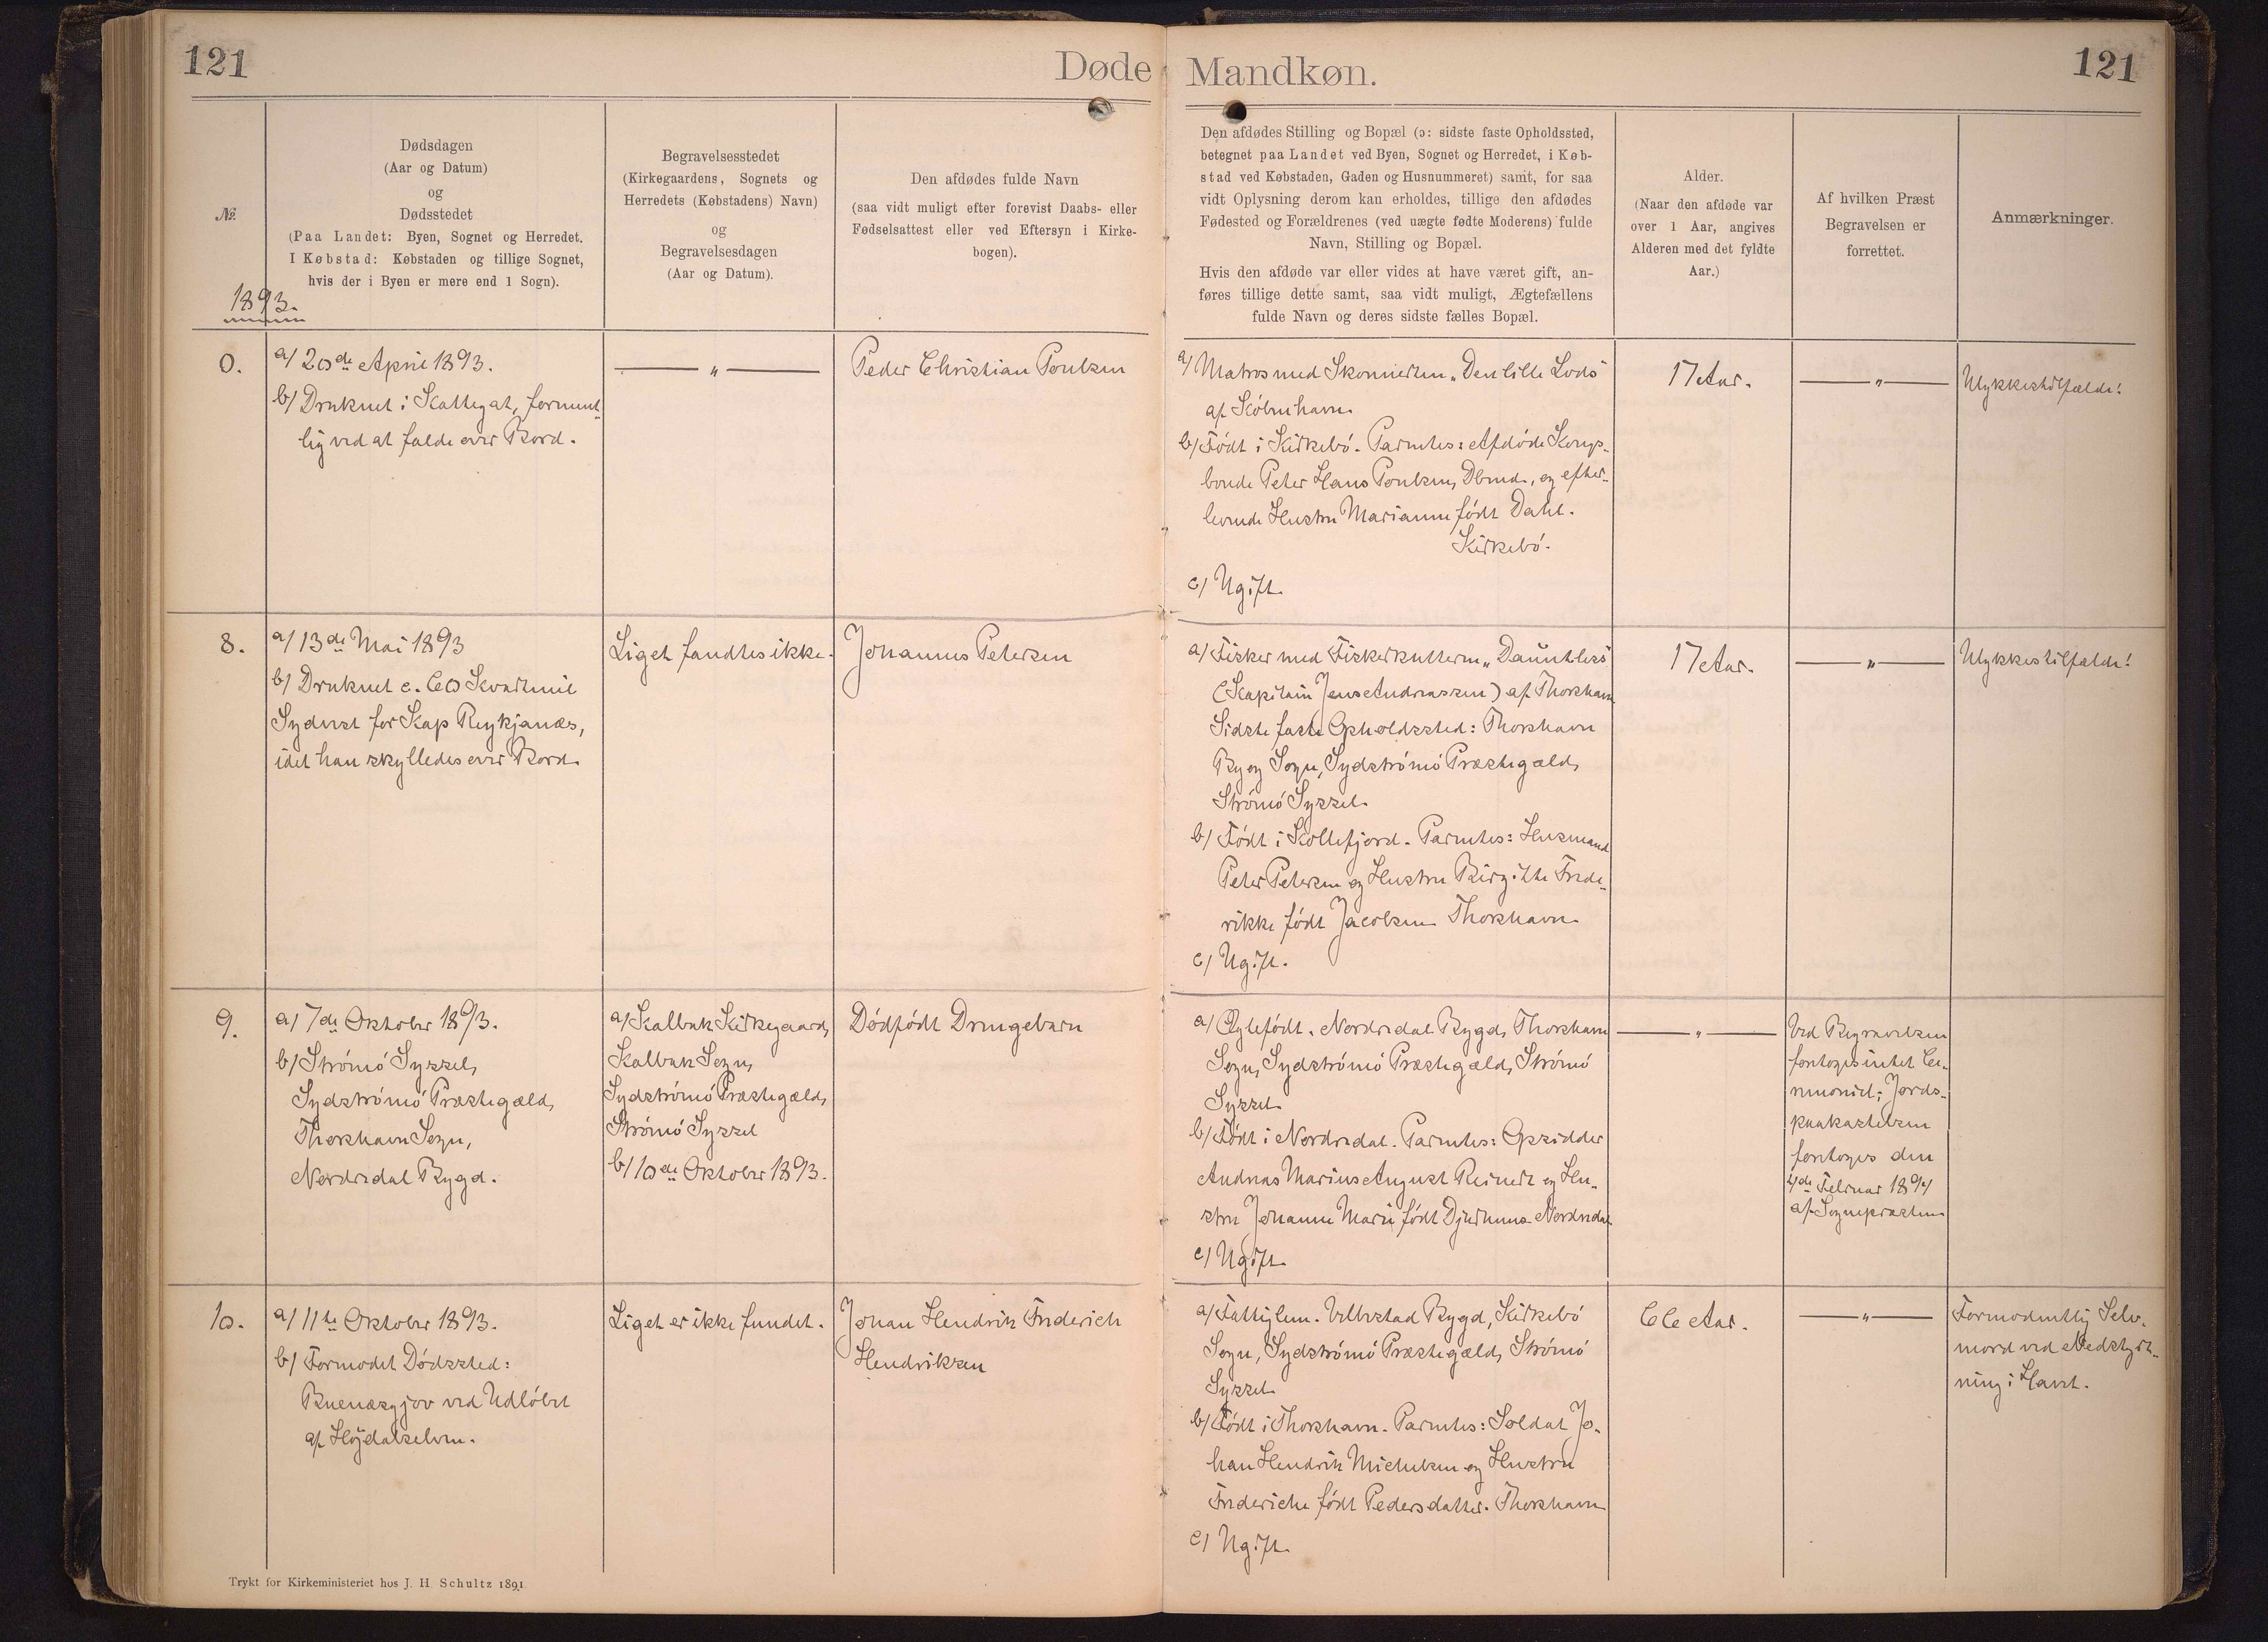 121
Døde
Mandkøn.
121
№
Dødsdagen
(Aar og Datum)
og
Dødsstedet
(Paa Landet: Byen, Sognet og Herredet.
I Købstad: Købstaden og tillige Sognet,
hvis der i Byen er mere end 1 Sogn).
Begravelsesstedet
(Kirkegaardens, Sognets og
Herredets (Købstadens) Navn)
og
Begravelsesdagen
(Aar og Datum).
Den afdødes fulde Navn
(saa vidt muligt efter forevist Daabs- eller
Fødselsattest eller ved Eftersyn i Kirke-
bogen).
Den afdødes Stilling og Bopæl (ɔ: sidste faste Opholdssted,
betegnet paa Landet ved Byen, Sognet og Herredet, i Køb-
stad ved Købstaden, Gaden og Husnummeret) samt, for saa
vidt Oplysning derom kan erholdes, tillige den afdødes
Fødested og Forældrenes (ved uægte fødte Moderens) fulde
Navn, Stilling og Bopæl.
Hvis den afdøde var eller vides at have været gift, an-
føres tillige dette samt, saa vidt muligt, Ægtefællens
fulde Navn og deres sidste fælles Bopæl.
Alder.
(Naar den afdøde var
over 1 Aar, angives
Alderen med det fyldte
Aar.)
Af hvilken Præst
Begravelsen er
forrettet.
Anmærkninger.
1893.
0.
a/ 20de April 1893.
b/ Druknet i Kattegat, forment-
lig ved at falde over Bord.
— " —
Peder Christian Poulsen
a/ Matros med Skonnerten „Den lille Lods"
af Köbenhavn.
b/ Födt i Kirkebö. Parentes: Afdöde Kongs-
bonde Peter Hans Poulsen, Dbmd., og efter-
levende Hustru Marianne födt Dahl.
Kirkebö.
c/ Ugift.
17 Aar.
— " —
Ulykkestilfælde!
8.
a/ 13de Mai 1893
b/ Druknet c. 60 Kvartmil
Sydvest for Kap Reykjanæs,
idet han skylledes over Bord.
Liget fandtes ikke.
Johannes Petersen
a/ Fisker med Fiskerkutteren „Dauntless"
(Kapitain Jens Andreassen) af Thorshavn
Sidste faste Opholdssted: Thorshavn
By og Sogn, Sydströmö Præstegæld,
Strömö Syssel.
b/ Födt i Kollefjord. Parentes: Husmand
Peter Petersen og Hustru Birgitte Frede-
rikke födt Jacobsen. Thorshavn.
c/ Ugift.
17 Aar.
— " —
Ulykkestilfælde!
9.
a/ 7de Oktober 1893.
b/ Strömö Syssel,
Sydströmö Præstegæld,
Thorshavn Sogn,
Nordredal Bygd.
a/ Kalbak Kirkegaard,
Kalbak Sogn,
Sydströmö Præstegæld,
Strömö Syssel
b/ 10de Oktober 1893.
Dödfödt Drengebarn
a/ Ægtefödt. Nordredal Bygd, Thorshavn
Sogn, Sydströmö Præstegæld, Strömö
Syssel.
b/ Födt i Nordredal. Parentes: Opsidder
Andreas Marius August Reinert og Hu-
stru Johanne Marie födt Djurhuus. Nordredal
c/ Ugift.
— " —
Ved Begravelsen
foretoges intet Ce-
remoniel; Jords-
paakastelsen
foretoges den
4de Februar 1894
af Sognepræsten.
10.
a/ 11te Oktober 1893.
b/ Formodet Dödssted:
ved Udlöbet
af Höjdalselven.
Liget er ikke fundet.
Johan Hendrik Frederich
Hendriksen
a/ Fattiglem. Velbestad Bygd, Kirkebö
Sogn, Sydströmö Præstegæld, Strömö
Syssel.
b/ Födt i Thorshavn. Parentes: Soldat Jo-
han Hendrik Michelsen og Hustru
Frederiche födt Pedersdatter. Thorshavn.
c/ Ugift.
66 Aar.
— " —
Formodentlig Selv-
mord ved Nedstyrt-
ning i Havet.
Trykt for Kirkeministeriet hos J. H. Schultz 1891.